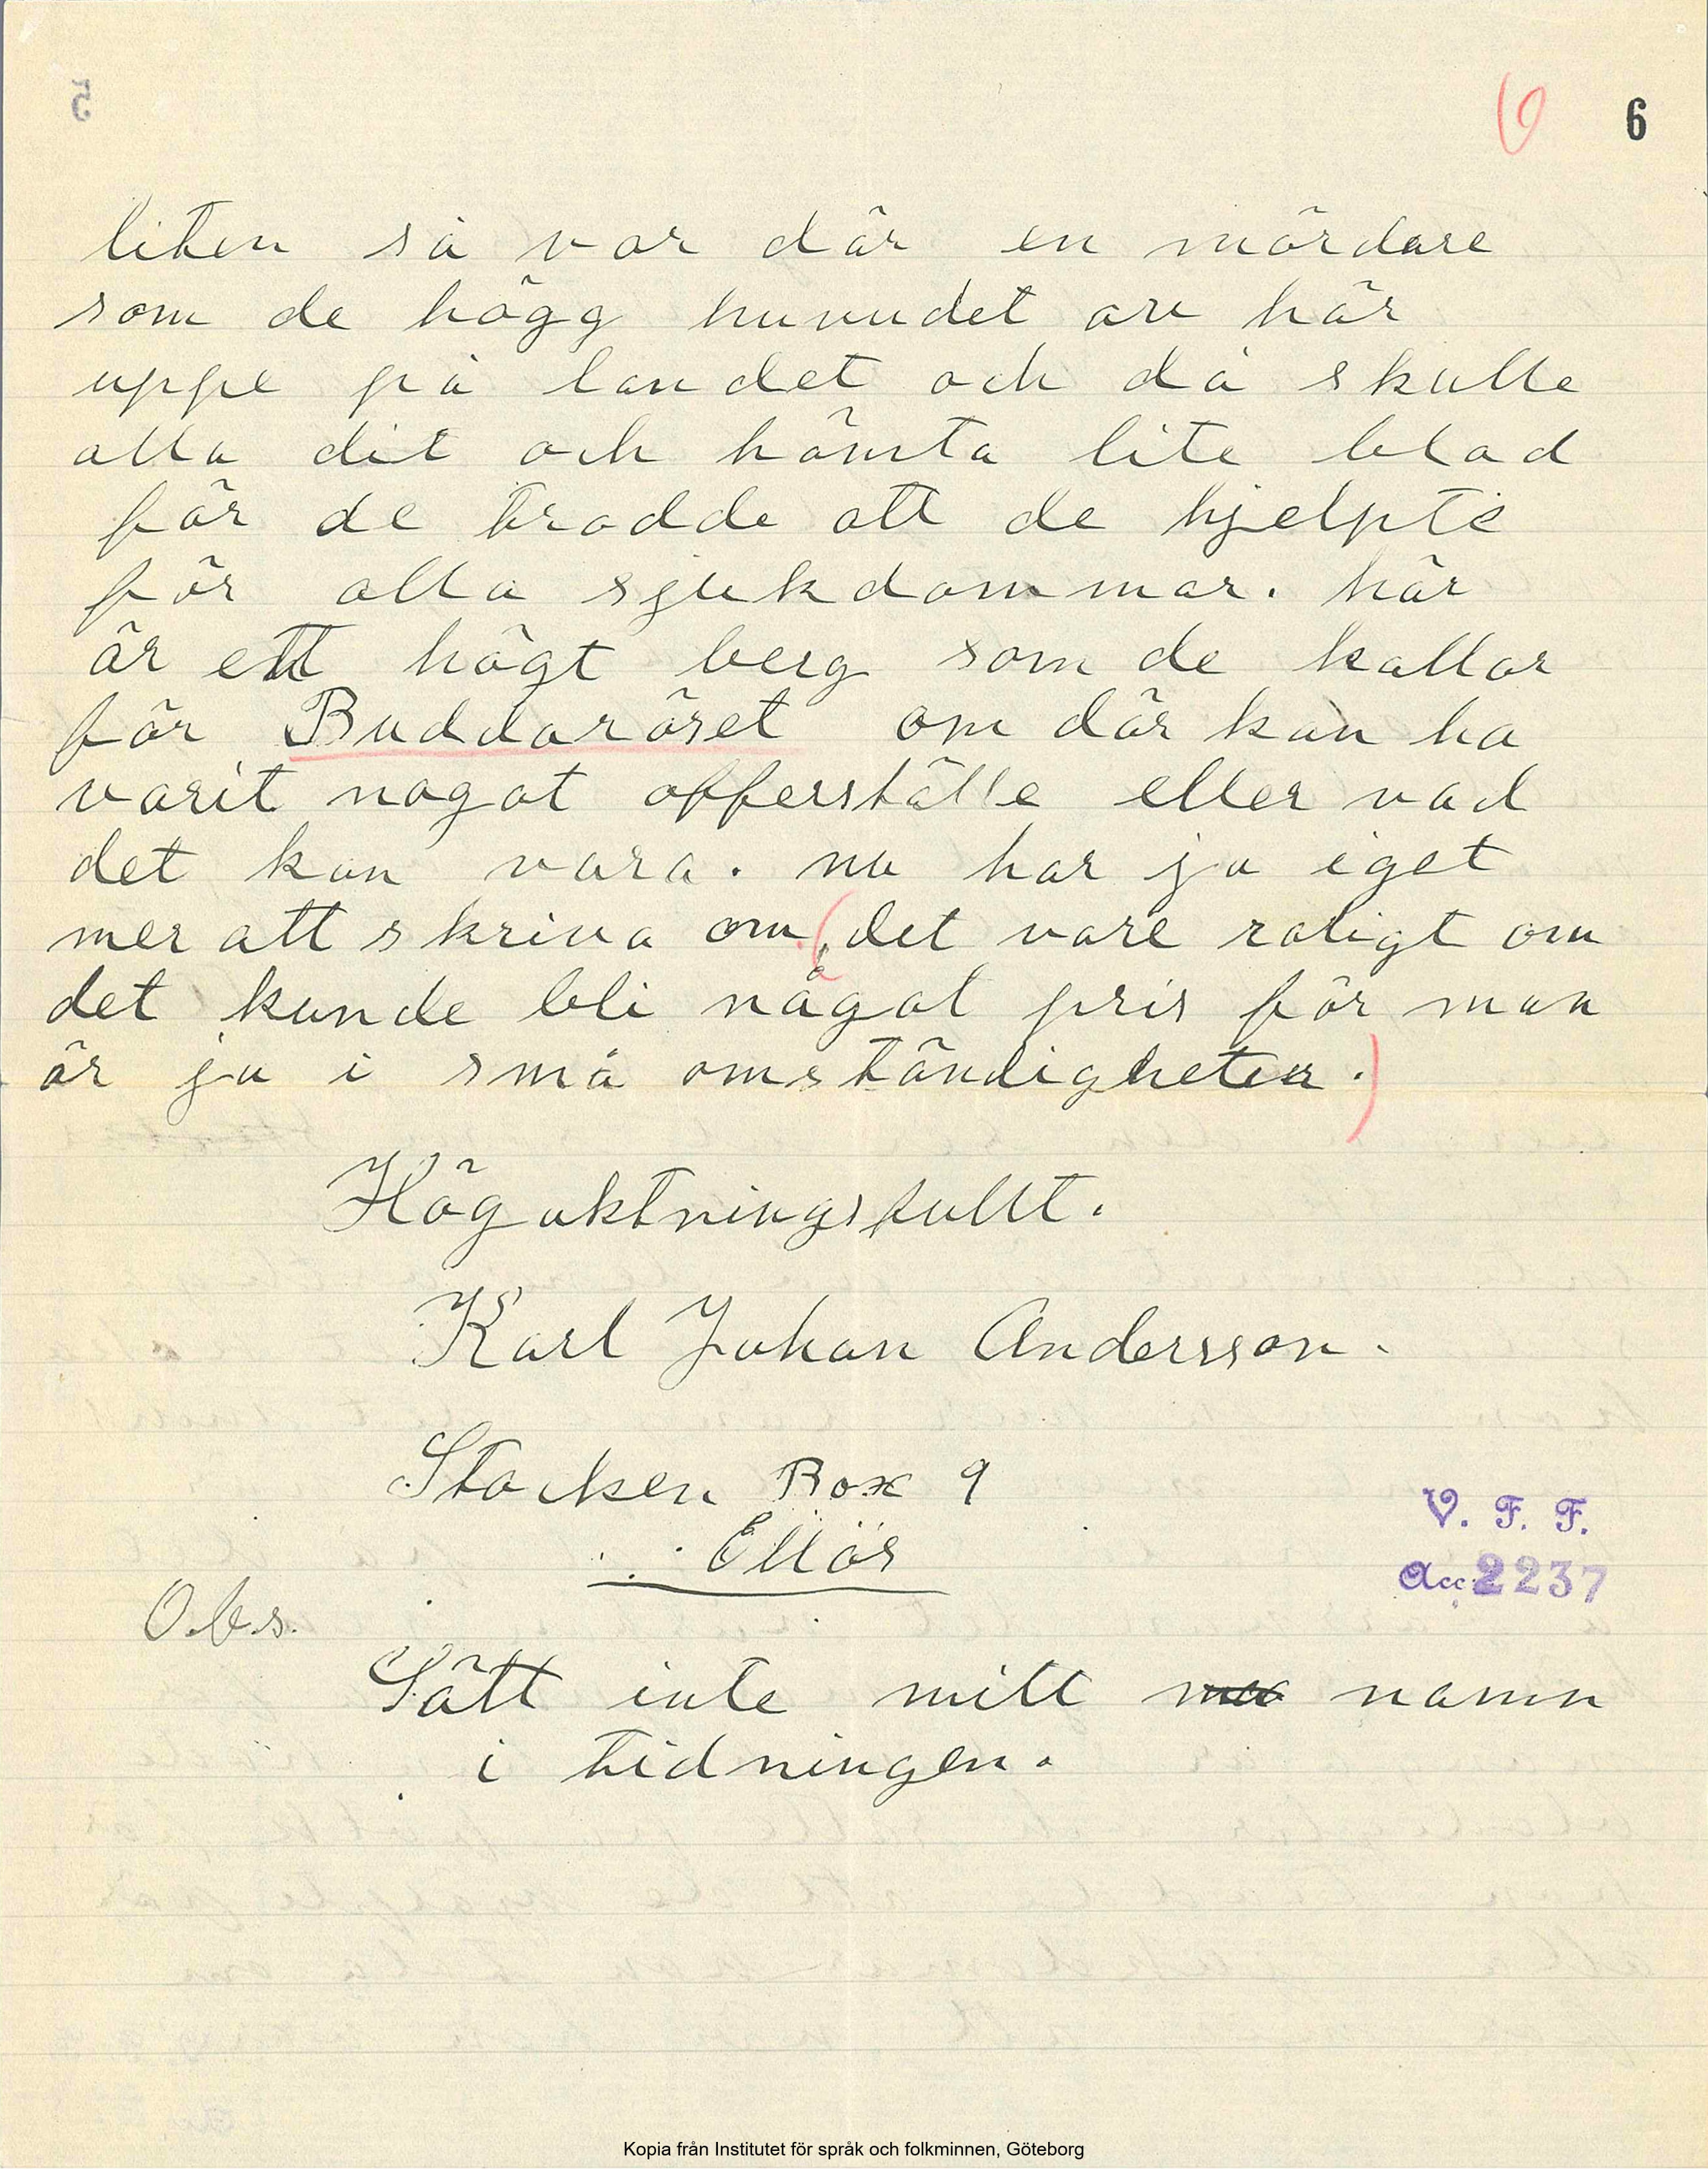 6
liten så var där en mördare
som de högg huvudet av här
uppe på landet och då skulle
alla dit och hämta lite blod
för de trodde att de hjelpte
för alla sjukdommar. här
är ett högt berg som de kallar
för Buddaröset om där kan ha
varit nogot offerställe eller vad
det kan vara. nu har ja iget
mer att skriva om. (det vore roligt om
det kunde bli något pris för man
är ju i små omständigheter.)
Högaktningsfullt.
Karl Johan Andersson.
Stocken Box 9
Ellös
V. F. F.
Acc. 2237
Obs.
Sätt inte mitt namn
i tidningen.
Kopia från Institutet för språk och folkminnen, Göteborg